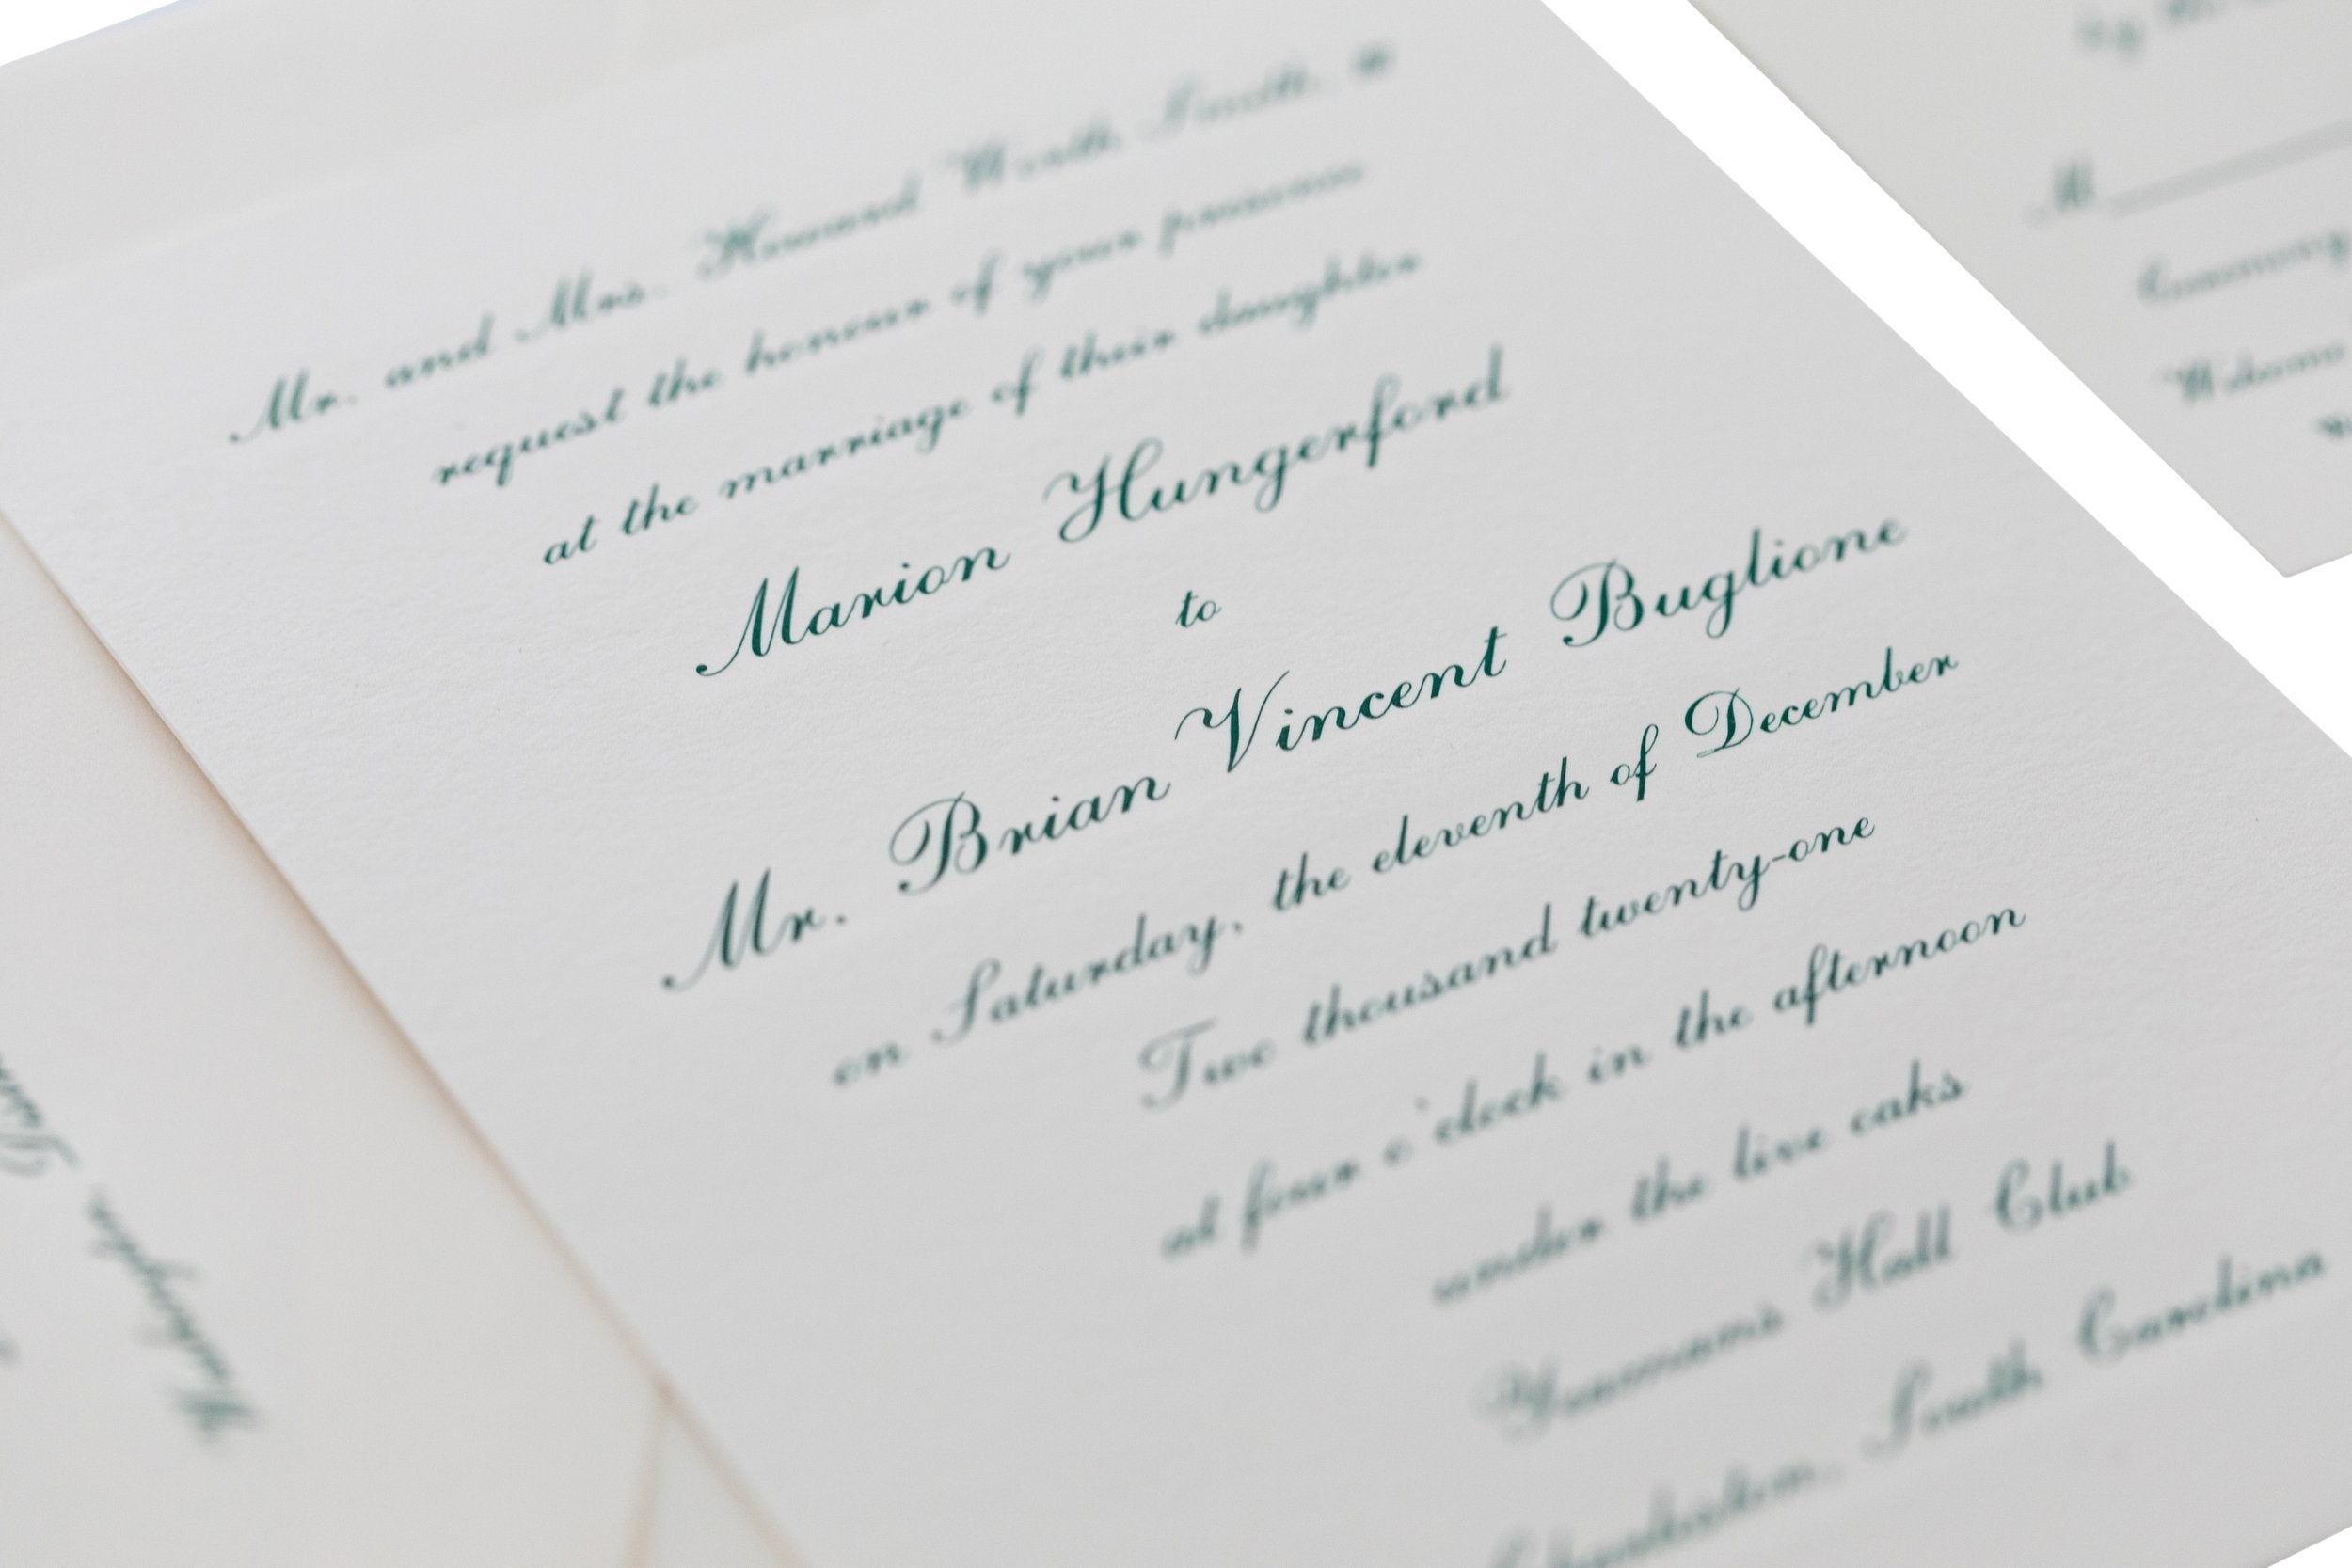 Mr. and Mrs. Howard Worth Smith, III
request the honour of your presence
at the marriage of their daughter
Marion Hungerford
to
Mr. Brian Vincent Buglione
on Saturday, the eleventh of December
Two thousand twenty-one
at four o'clock in the afternoon
under the live oaks
Yeamans Hall Club
Charleston, South Carolina
M